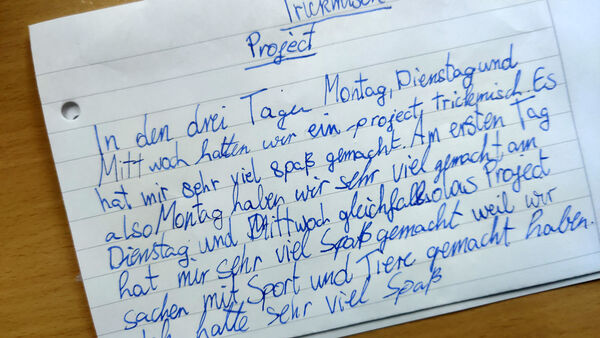 Trickmisch
Project
In den drei Tagen Montag, Dienstag und
Mittwoch hatten wir ein project trickmisch. Es
hat mir sehr viel spaß gemacht. Am ersten Tag
also Montag haben wir sehr viel gemacht, am
Dienstag und Mittwoch gleichfalls das Project
hat mir sehr viel Spaß gemacht weil wir
sachen mit Sport und Tiere gemacht haben.
Ich hatte sehr viel Spaß